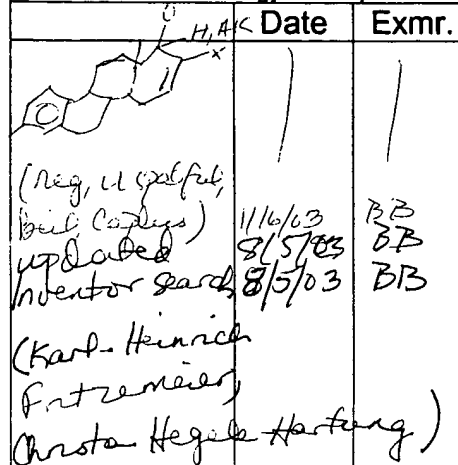 O
H, AK Date Exmr.
X
(reg, uspatful,
beil, caplus) 1/6/03 BB
updated 8/5/03 BB
Inventor search 8/5/03 BB
(Karl-Heinrich
Fritzemeier,
Christa Hegele-Hartung)